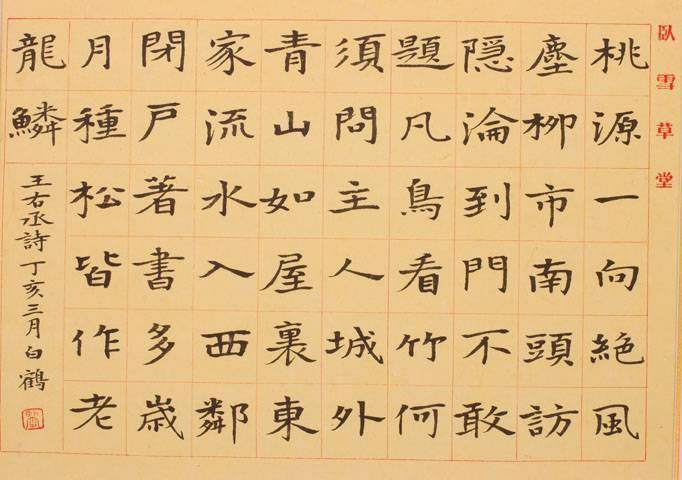 臥雪草堂
桃源一向絕風
塵柳市南頭訪
隱淪到門不敢
題凡鳥看竹何
須問主人城外
青山如屋裏東
家流水入西鄰
閉戶著書多歲
月種松皆作老
龍鱗
王右丞詩丁亥三月白鶴